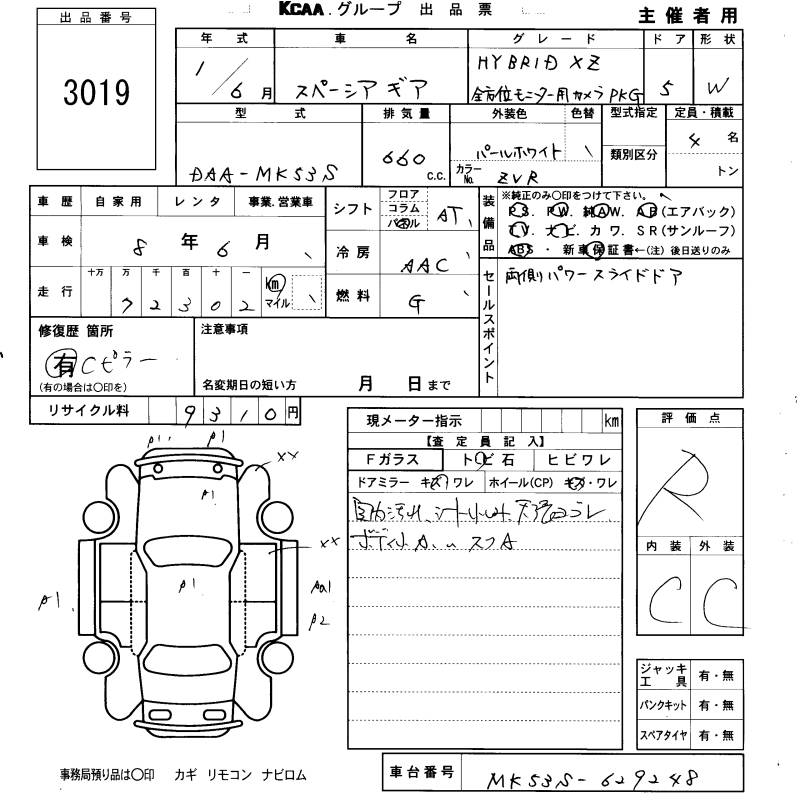 KCAA.グループ 出品票
主催者用
出品番号
3019
年式 車名 グレード ドア 形状
1/6月 スペーシア ギア HYBRID XZ 全方位モニター用カメラPKG 5 W
型式 排気量 外装色 色替 型式指定 定員・積載
DAA-MK53S 660 c.c. パールホワイト 類別区分 4名
カラーNo. ZVR トン
車歴 自家用 レンタ 事業.営業車
シフト フロア コラム パネル AT
装備品 ※純正のみ○印をつけて下さい。
PS. PW. 純AW. AB(エアバック)
TV. ナビ. カワ. SR(サンルーフ)
ABS・新車保証書←(注) 後日送りのみ
車検 8年6月
冷房 AAC
走行 十万 万 千 百 十 一
72302 km マイル
燃料 G
セールスポイント 両側パワースライドドア
修復歴 箇所
有 Cピラー
(有の場合は○印を)
注意事項
名変期日の短い方 月 日まで
リサイクル料 9310円
現メーター指示 km
【査定員記入】
Fガラス トビ石 ヒビワレ
ドアミラー キズ ワレ ホイール(CP) キズ・ワレ
評価点
R
内装 外装
C C
P1 P1
XX
P1
XX
P1 P1 Aa1
P2
ジャッキ工具 有・無
パンクキット 有・無
スペアタイヤ 有・無
事務局預り品は○印 カギ リモコン ナビロム
車台番号 MK53S-629248